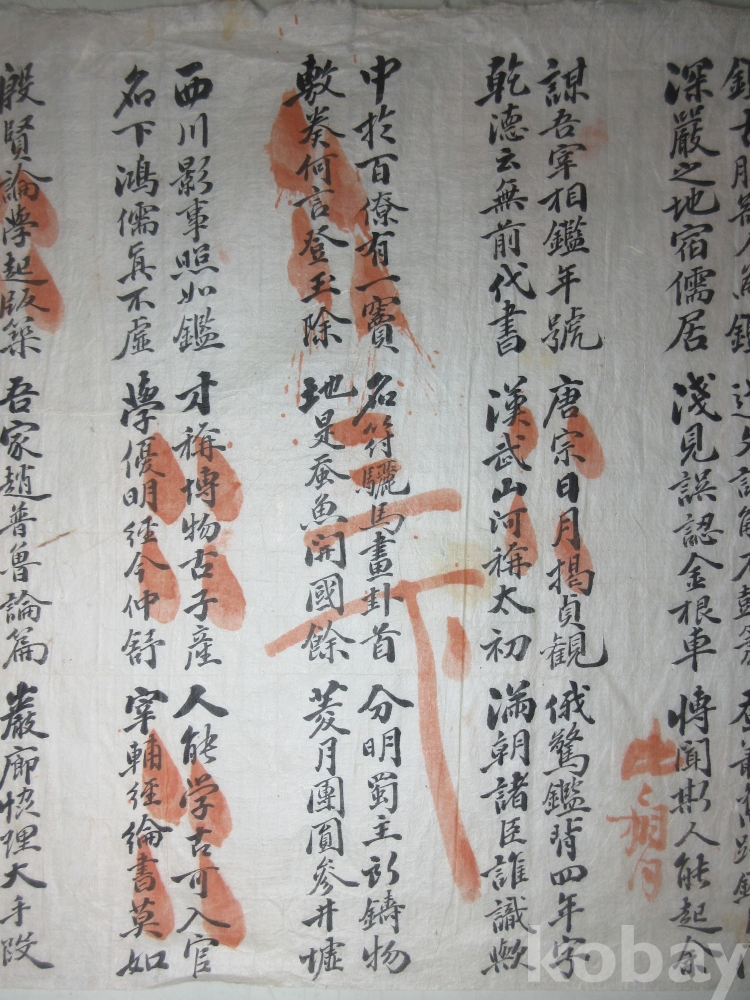 深嚴之地宿儒居 淺見誤認金根車 聞斯人能起余
謀吾宰相鑑年號 唐宗日月揭貞觀 俄驚鑑背四年字
乾德云無前代書 漢武山河稱太初 滿朝諸臣誰識歟
三下
中於百僚有一竇 名符驪馬畫卦首 分明蜀主所鑄物
敷奏何言登玉除 地是蚕魚開國餘 菱月團圓參井墟
西川影事照如鑑 才稱博物古子産 人能学古可入官
名下鴻儒眞不虛 學優明經今仲舒 宰輔經綸書莫如
殷賢論學起版築 吾家趙普魯論篇 巖廊理大手段
kobay